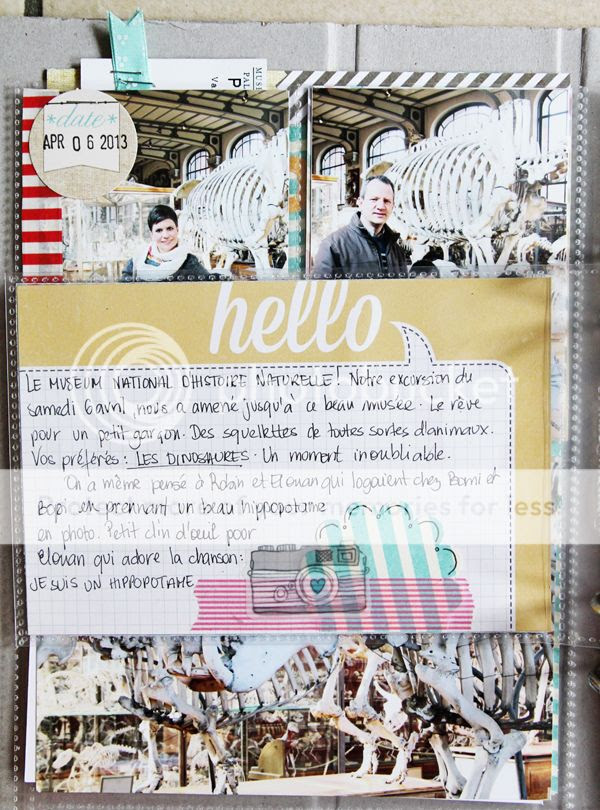 MUSE
PAL
P
Va
*date*
APR 06 2013
hello
LE MUSEUM NATIONAL D'HISTOIRE NATURELLE! Notre excursion du
samedi 6 avril nous a amené jusqu'à ce beau musée. Le rêve
pour un petit garçon. Des squelettes de toutes sortes d'animaux.
Vos préférés: LES DINOSAURES. Un moment inoubliable.
On a même pensé à Robin et Elouan qui logeaient chez Bomi et
Bopi en prennant un beau hippopotame
en photo. Petit clin d'oeuil pour
Elouan qui adore la chanson:
JE SUIS UN HIPPOPOTAME